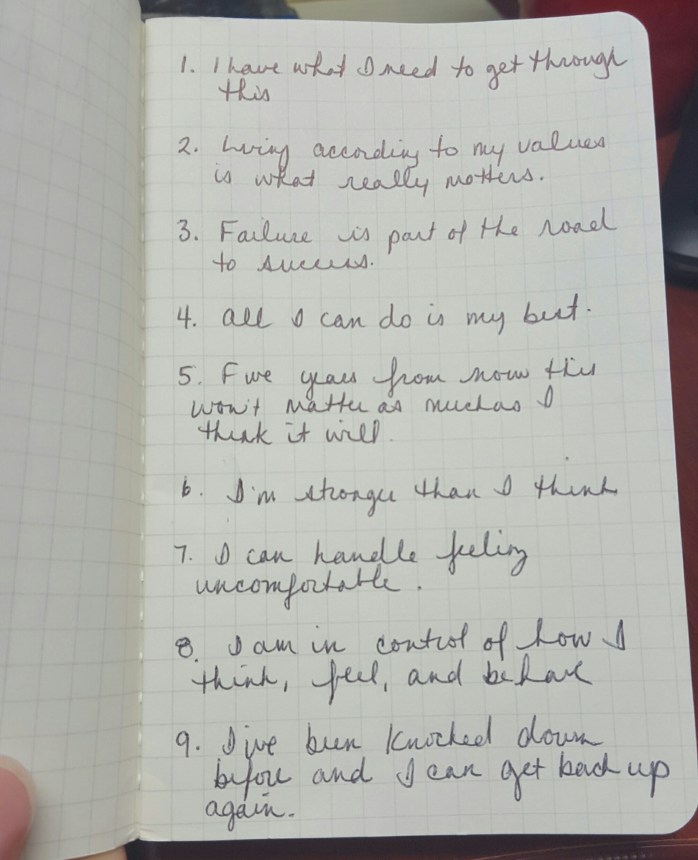 1. I have what I need to get through
this
2. Living according to my values
is what really matters.
3. Failure is part of the road
to success.
4. All I can do is my best.
5. Five years from now this
won't matter as much as I
think it will.
6. I'm stronger than I think
7. I can handle feeling
uncomfortable.
8. I am in control of how I
think, feel, and behave
9. I've been knocked down
before and I can get back up
again.